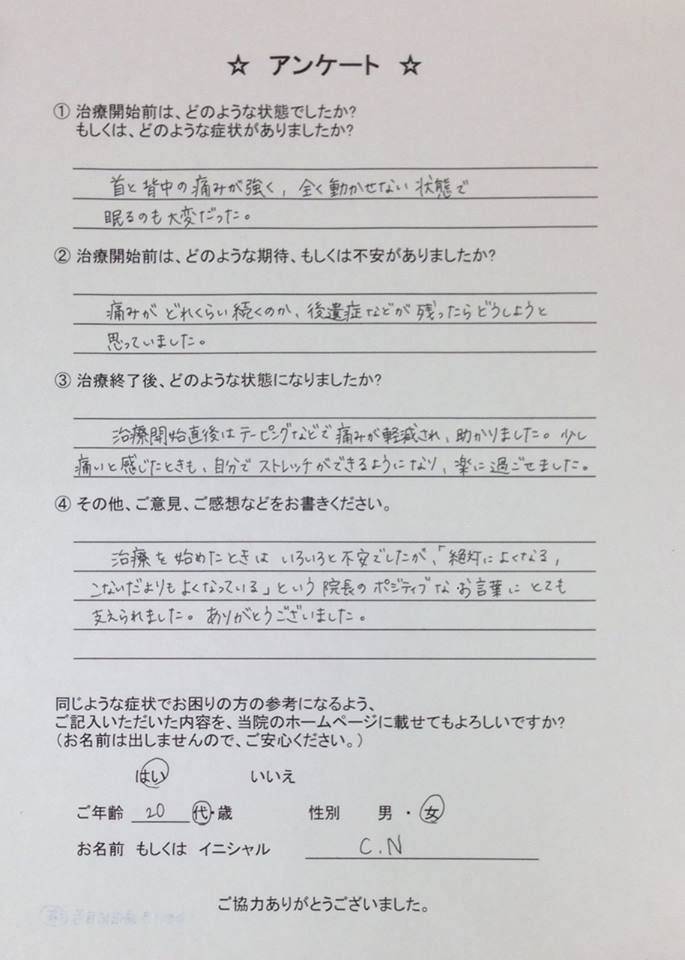 ☆ アンケート ☆
① 治療開始前は、どのような状態でしたか?
もしくは、どのような症状がありましたか?
首と背中の痛みが強く、全く動かせない状態で
眠るのも大変だった。
② 治療開始前は、どのような期待、もしくは不安がありましたか?
痛みがどれくらい続くのか、後遺症などが残ったらどうしようと
思っていました。
③ 治療終了後、どのような状態になりましたか?
治療開始直後はテーピングなどで痛みが軽減され、助かりました。少し
痛いと感じたときも、自分でストレッチができるようになり、楽に過ごせました。
④ その他、ご意見、ご感想などをお書きください。
治療を始めたときはいろいろと不安でしたが、「絶対によくなる、
こないだよりもよくなっている」という院長のポジティブなお言葉にとても
支えられました。ありがとうございました。
同じような症状でお困りの方の参考になるよう、
ご記入いただいた内容を、当院のホームページに載せてもよろしいですか?
(お名前は出しませんので、ご安心ください。)
はい いいえ
ご年齢 20 代・歳 性別 男・女
お名前 もしくは イニシャル C.N
ご協力ありがとうございました。